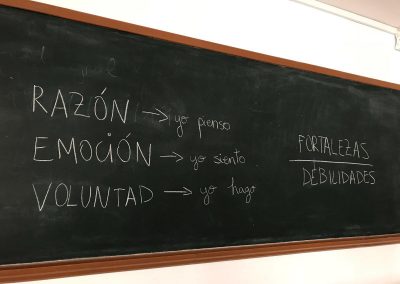 RAZÓN → yo pienso
EMOCIÓN → yo siento
VOLUNTAD → yo hago
FORTALEZAS
DEBILIDADES